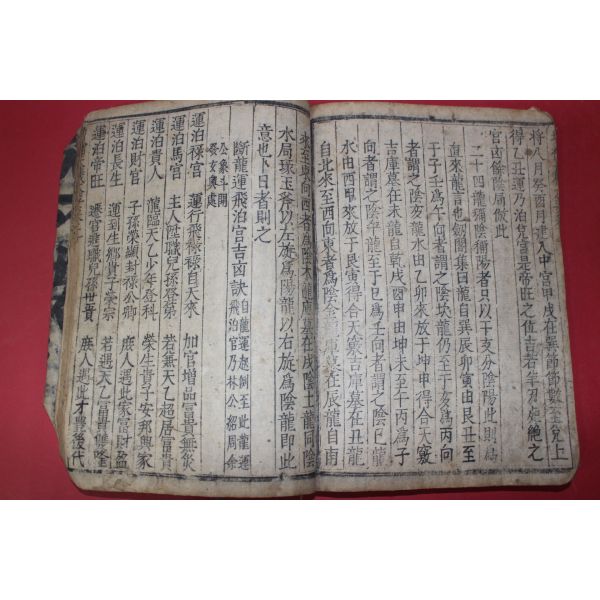 將八月癸酉月建入中宮甲戌在巽節節數至兌上
得乙丑運乃泊兌宮是帝旺之位吉若年丑是絶之
宮凶餘陰局倣此
二十四龍獨陰獨陽者只以干支分陰陽此則爲
直來龍言也劒閣集曰龍自巽辰卯寅由艮丑至
于子爲午向者謂之陰坎龍仍至于亥爲丙向
者謂之陰亥龍水由乙卯來放于坤申得合天竅
吉庫墓在未龍自乾戌酉申由坤未至午丙爲子
向者謂之陰午龍至于巳爲壬向者謂之陰巳龍
水由酉申來放于艮寅得合天竅吉庫墓在丑龍
自北來至西向東者爲陰金龍庫墓在辰龍自南
來至東向西者爲陰木龍庫墓在戌陰土龍同陰
水局琢玉斧以左旋爲陽龍以右旋爲陰龍即此
意也卜日者則之
斷龍運飛泊宮吉凶訣
自龍運起例至此龍運
飛泊宮乃林公紹周余
公象斗開
發玄奧處
運泊祿宮 運行飛祿祿自天來 加官增品富貴無災
運泊馬宮 主人遷職兒孫登第 若兼天乙超居富貴
運泊貴人 龍臨天乙少年登科 榮生貴子安邦興家
運泊財宮 子孫榮顯封祿公卿 庶人遇此家富財盈
運泊長生 運到生鄉貴子榮宗 若遇天乙富貴雙隆
運泊帝旺 遷官進職兒孫世貴 庶人遇此才豊後代